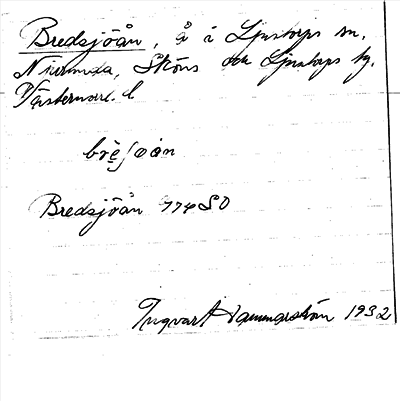 Bredsjöån, å i Ljustorps sn.
Njurunda, Sköns och Ljustorps tg.
Västernorrl. l
Bredsjöån 774 SO
Ingvar Hammarström 1932